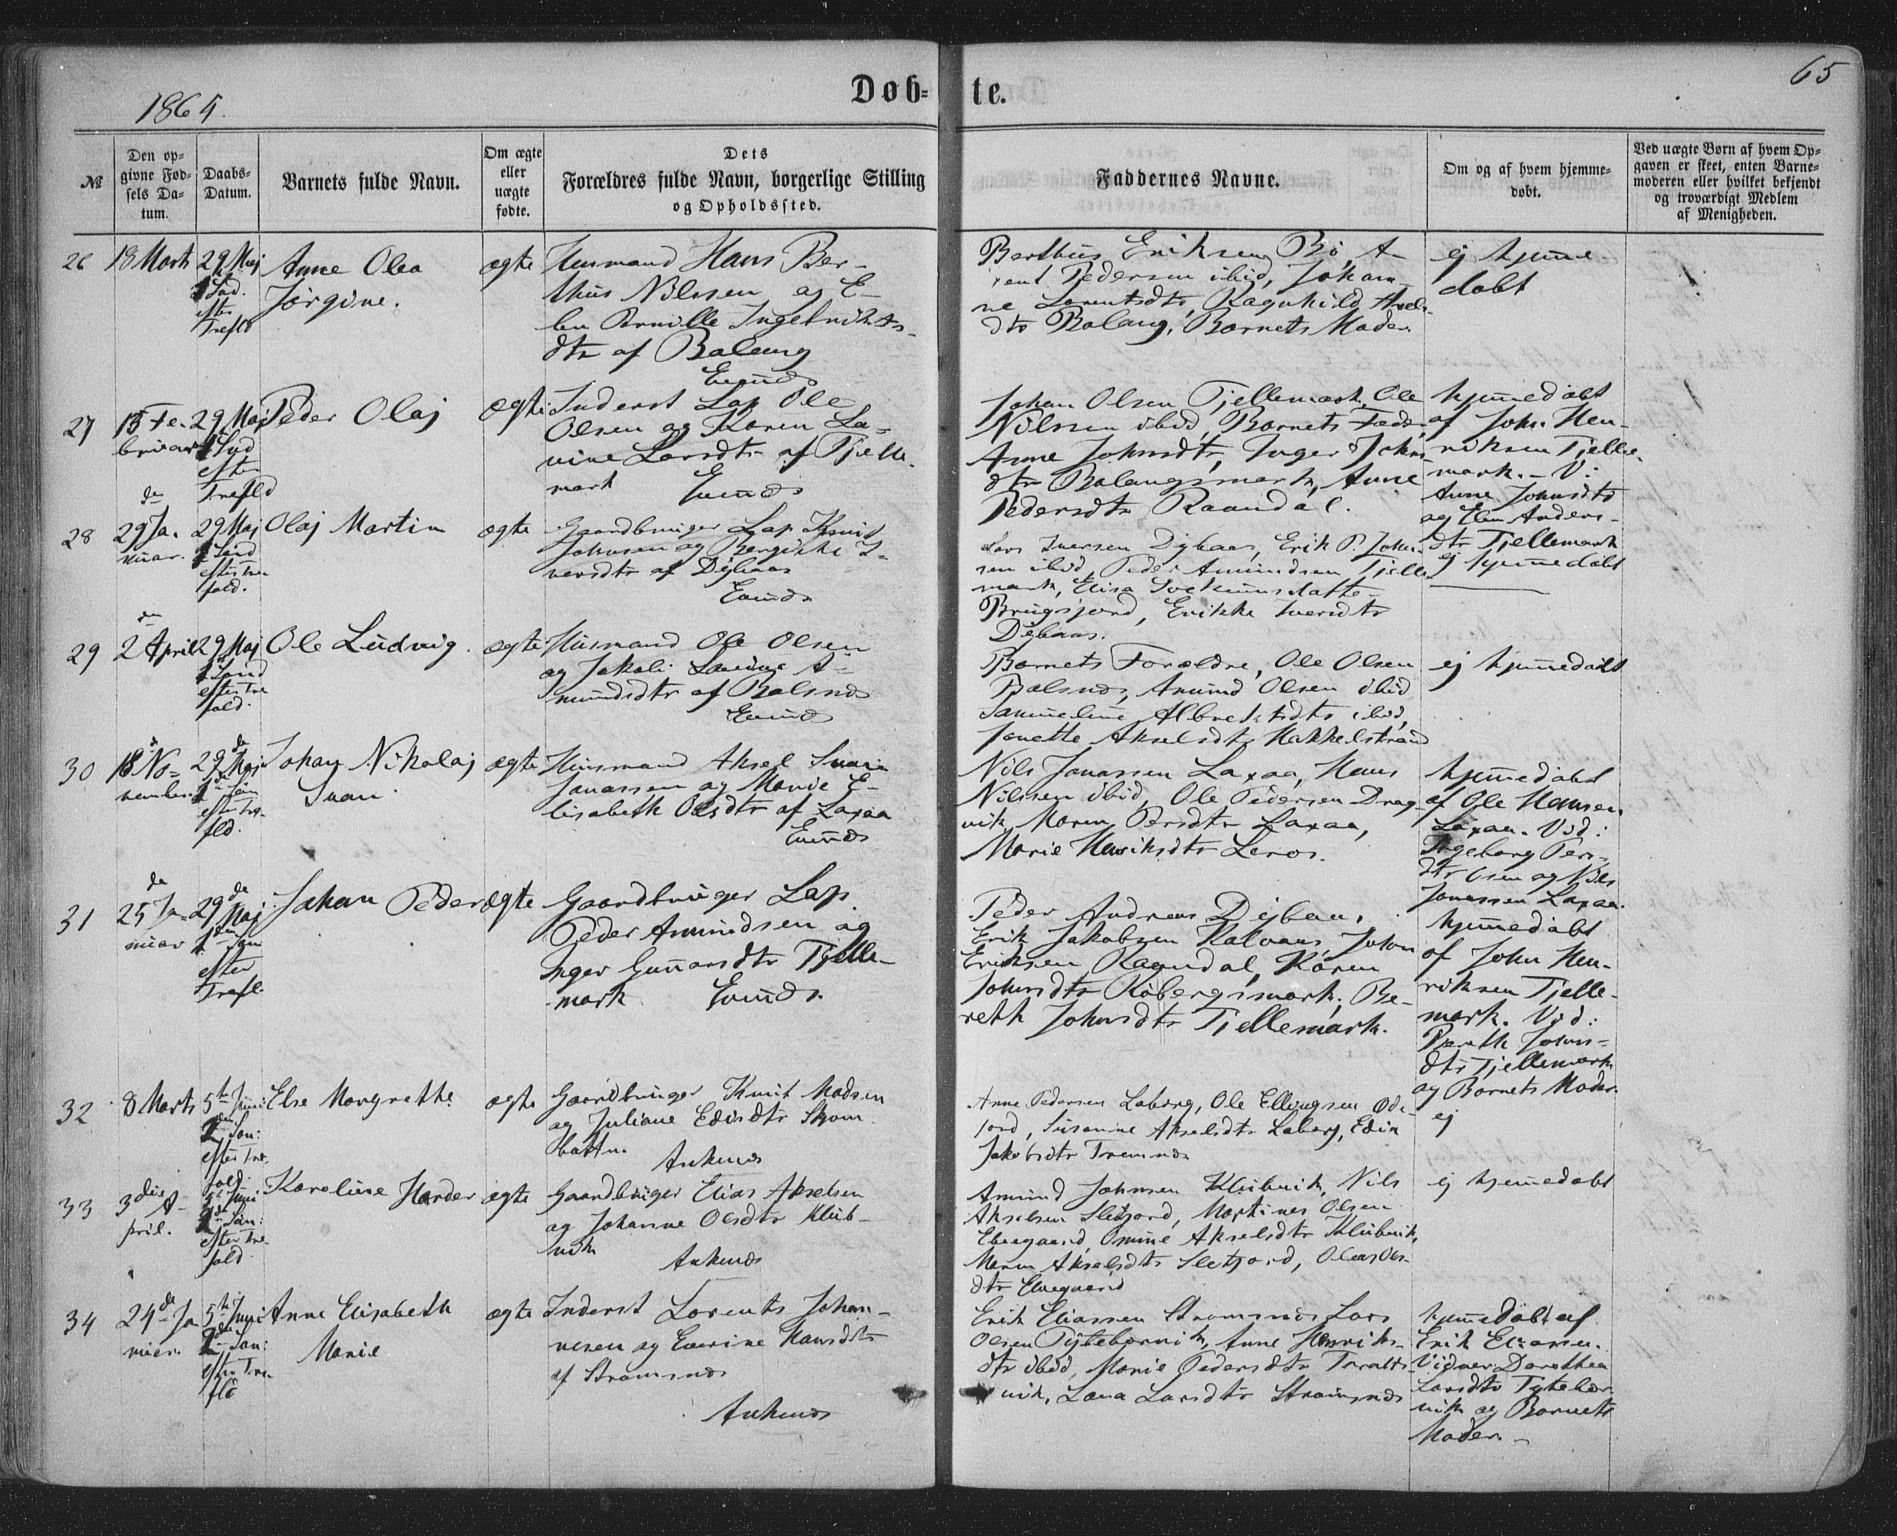 1864.
Døb-te.
65
№
Den op-
givne Fød-
sels Da-
tum.
Daabs-
Datum.
Barnets fulde Navn.
Om ægte
eller
uægte
fødte.
Dets
Forældres fulde Navn, borgerlige Stilling
og Opholdssted.
Faddernes Navne.
Om og af hvem hjemme-
døbt.
Ved uægte Børn af hvem Op-
gaven er skeet, enten Barne-
moderen eller hvilket bekjendt
og troværdigt Medlem
af Menigheden.
26
18 Marts
29 Maj
1 Sød.
efter
Trefld
Anne Olea
Jørgine.
ægte
Husmand Hans Ber-
thus Nilssen og E-
len Pernille Ingebrikts-
dtr af Balang
Evends
Berthus Eriksen Bø, A-
rent Pedersen ibid, Johan-
ne Lorentsdtr, Ragnhild
dtr Balang, Barnets Moder
ej hjemme
døbt
27
13 Fe-
bruar
29 Maj
1 Snd
efter
Trefld
Peder Olaj
ægte
Inderst Lap Ole
Olsen og Karen La-
vine Larsdtr af Tjelle-
mark Evends
Johan Olsen Tjellemark, Ole
Nilssen ibid, Barnets Fader
Anne Johnsdtr, Inger Johns
dtr Balangsmark, Anne
Pedersdtr Raandal.
hjemmedøbt
af John Hen-
riksen Tjelle-
mark. - V:
Anne Johnsdtr
og Elen Anders-
dtr Tjellemark
28
29 Ja-
nuar.
29 Maj
1 Sønd
efter Tre
fold.
Olaj Martin
ægte
Gaardbruger Lap Knut
Johnsen og Bergithe I-
versdtr af Dybaas
Evends
Lars Iversen Dybaas, Erik P. John-
sen ibid, Peder Amundsen Tjelle
mark, Elisa
Erikke Iversdtr
Dybaas.
ej hjemmedøbt
29
2 April
29 Maj
1 Sønd
efter Tre
fold.
Ole Ludvig.
ægte
Husmand Ole Olsen
og Jakobi Lavine A-
mundsdtr af Balsnes
Evends
Barnets Forældre, Ole Olsen
Balsnes, Amund Olsen ibid
Sammeline Albrektsdtr ibid,
Janette Akselsdtr Hakkelstrand
ej hjemmedøbt
30
18 No-
vember.
29de Maj
1 Søn
efter Tre-
fld.
Johan Nikolaj
Ivan.
ægte
Husmand Aksel
Jonassen og Marie E-
lisabeth Olsdtr af Laxaa
Evends
Nils Jonassen Laxaa, Hans
Nilssen ibid, Ole Pedersen Drag-
vik, Maren Persdtr Laxaa,
Marie Henriksdtr Leros.
hjemmedøbt
af Ole Hansen
Laxaa. Vid:
Ingeborg Pers-
dtr Osen og Nils
Jonassen Laxaa.
31
25de Ja-
nuar
29de Maj
1 Søn
efter
Trefl.
Johan Peder
ægte
Gaardbruger Lap
Peder Amundsen og
Inger Gunnarsdtr Tjelle-
mark Evends.
Peder Andreas Dybaa,
Erik Jakobsen Kalvaas, Johan
Eriksen Raandal, Karen
Johnsdtr Kobergsmark, Be-
reth Johnsdtr Tjellemark.
hjemmedøbt
af John Hen-
riksen Tjelle-
mark. Vid:
Bereth Johns-
dtr Tjellemark
og Barnets Moder.
32
8 Marts
5te Juni
2 Søn:
efter Tre
fold.
Else Margrethe
ægte
Gaardbruger Knut Madsen
og Juliane Edisdtr Skom
botten.
Ankenes
Arne Pedersen Laberg, Ole Ellingsen Øde-
jord, Susanine Akselsdtr Laberg, Edin
Jakobsdtr Tremnes
ej
33
3die A-
pril.
5te Juni
2 Søn:
efter Tre
fold
Karoline Harder
ægte
Gaardbruger Elias Akselsen
og Johanne Olsdtr Klub-
vik
Ankenes
Amund Johnsen Klubvik, Nils
Akselsen Sletjord, Martines Olsen
Elvegaard, Omine Akselsdtr Klubvik,
Maren Akselsdtr Sletjord, Olea Ols-
dtr Elvegaard
ej hjemmedøbt
34
24de Ja
nuar.
5te Juni
2 Søn:
efter Tre-
fld
Anne Elisabeth
Marie
ægte
Inderst Lorents Johan-
nesen og Everine Hansdtr
af Strømsnes
Ankenes
Erik Eliassen Strømsnes Lars
Olsen Tytebærvik, Anne Henriks-
dtr ibid, Marie Pedersdtr Tralds-
vik, Lava Larsdtr Strømsnes
hjemmedøbt af
Erik Eliassen.
Vidner: Dorothea
Larsdtr Tytebær-
vik og Barnets
Moder. -